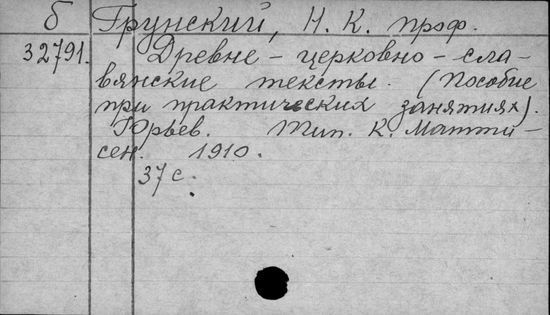 б Грунский, Н. К. проф.
32791. Древне-церковно-сла-
вянские тексты. (Пособие
при практических занятиях).
Юрьев. Тип. К. Маттi-
сен. 1910.
37 с.